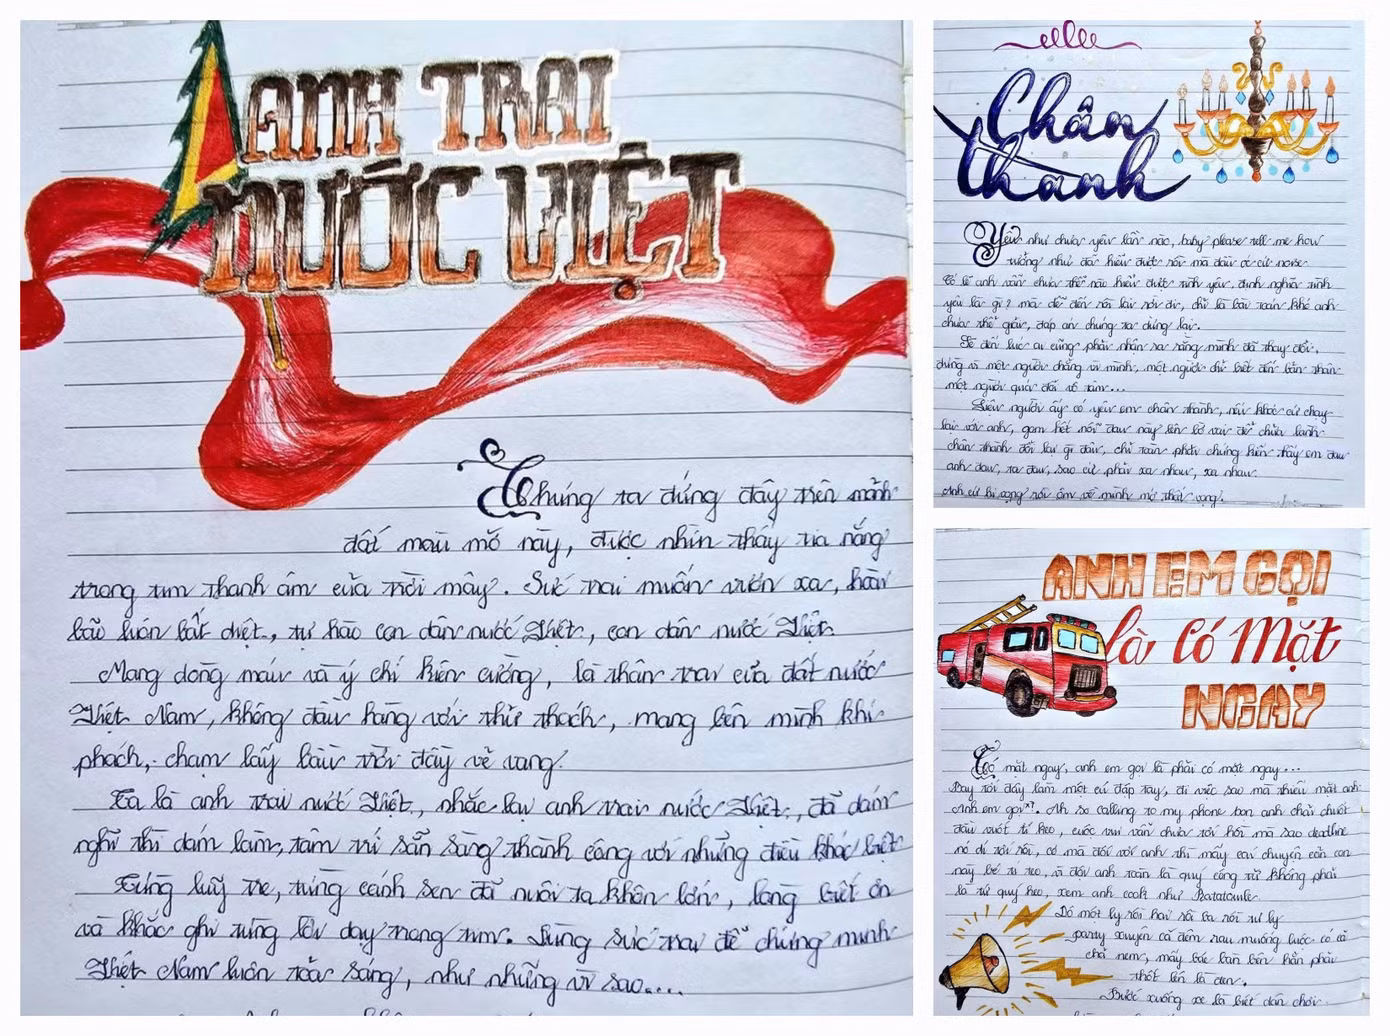 ANH TRAI
NƯỚC VIỆT
Chúng ta đứng đây trên mảnh
đất màu mỡ này, được nhìn thấy tia nắng
trong tim thanh âm của trời mây. Sức trai muốn vươn xa, hoài
bão luôn bất diệt, tự hào con dân nước Việt, con dân nước Việt
Mang dòng máu và ý chí kiên cường, là thân trai của đất nước
Việt Nam, không đầu hàng với thử thách, mang bên mình khí
phách, chạm lấy bầu trời đầy vẻ vang.
Ta là anh trai nước Việt, nhắc lại anh trai nước Việt, đã dám
nghĩ thì dám làm, tâm trí sẵn sàng thành công với những điều khác biệt
Từng luỹ tre, từng cánh sen đã nuôi ta khôn lớn, lòng biết ơn
và khắc ghi từng lời dạy trong tim. Dùng sức trai để chứng minh
Việt Nam luôn toả sáng, như những vì sao....
Chân
thành
Yêu như chưa yêu lần nào, baby please tell me how
tưởng như đã hiểu được rồi mà đâu cứ noise
Có lẽ anh vẫn chưa thể nào hiểu được tình yêu, định nghĩa tình
yêu là gì? mà dễ đến rồi lại rời đi, chỉ là bài toán khó anh
chưa thể giải, đáp án chúng ta dừng lại.
Sẽ đến lúc ai cũng phải nhận ra rằng mình đã thay đổi,
đừng vì một người chẳng vì mình, một người chỉ biết đến bản thân
một người quá đỗi vô tâm...
Liệu người ấy có yêu em chân thành, nếu khóc cứ chạy
lại với anh, gom hết nỗi đau này lên bờ vai để chữa lành
chân thành đổi lại gì đâu, chỉ toàn phải chứng kiến thấy em đau
anh đau, ta đau, sao cứ phải xa nhau, xa nhau.
Anh cứ hi vọng rồi ôm về mình mớ thất vọng.
ANH EM GỌI
là Có Mặt
NGAY
Có mặt ngay, anh em gọi là phải có mặt ngay...
Bay tới đây làm một cú đáp tay, đi việc sao mà thiếu mặt anh
Anh em gọi?. Ah so calling to my phone bọn anh chải chuốt
đầu vuốt tí keo, cuộc vui vẫn chưa tới hồi mà sao deadline
nó dí tới rồi, có mà đối với anh thì mấy cái chuyện cỏn con
này bé tí teo, vì đội anh toàn là quý công tử không phải
là tứ quý heo, xem anh cook như Ratatouille
Đó một ly rồi hai rồi ba rồi tư ly
party xuyên cả đêm rau muống luộc có cả
chả nem, mấy bác bàn bên hẳn phải
thốt lên là đen.
Bước xuống xe là biết dân chơi